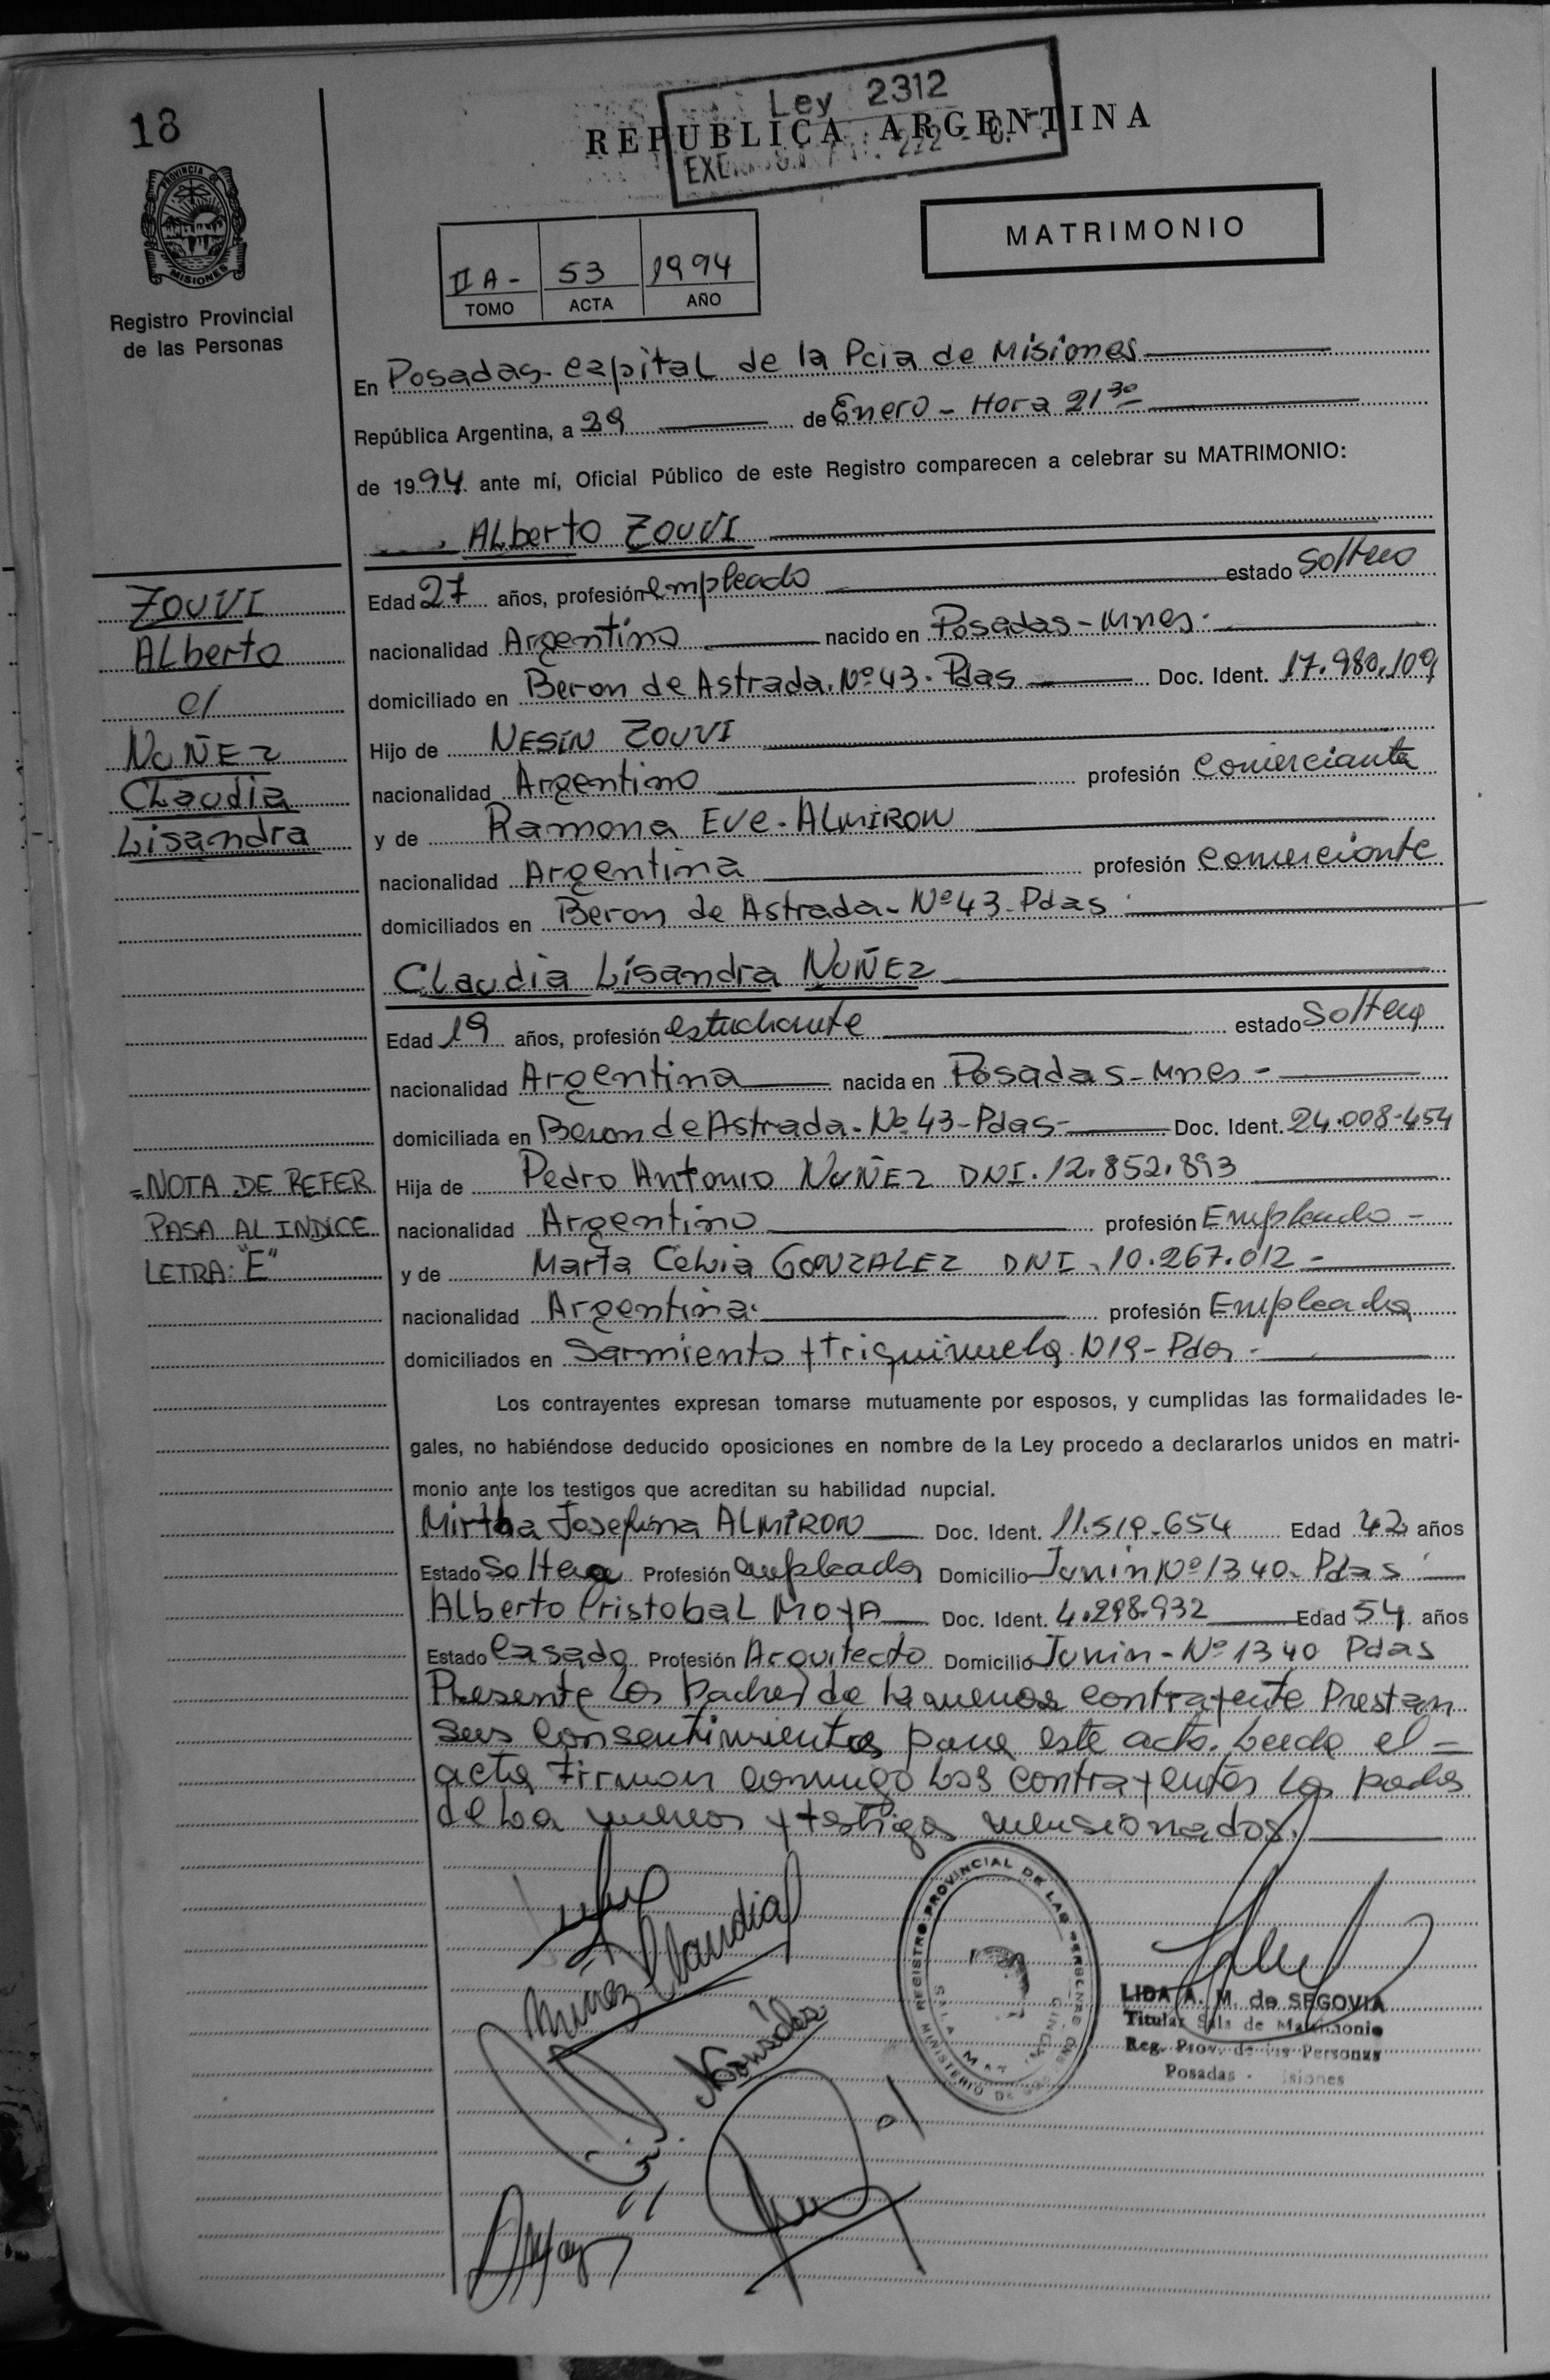 18
Ley 2312
REPUBLICA ARGENTINA
PROVINCIA DE
MISIONES
Registro Provincial
de las Personas
MATRIMONIO
II A - 53 1994
TOMO ACTA AÑO
En Posadas - capital de la Pcia de Misiones
República Argentina, a 29 de Enero - Hora 21 30
de 1994 ante mí, Oficial Público de este Registro comparecen a celebrar su MATRIMONIO:
Alberto ZOUVI
ZOUVI
Alberto
c/
NUÑEZ
Claudia
Lisandra
Edad 27 años, profesión empleado estado Soltero
nacionalidad Argentino nacido en Posadas - Mnes.
domiciliado en Beron de Astrada. Nº 43. Pdas Doc. Ident. 17.980.109
Hijo de NESIN ZOUVI
nacionalidad Argentino profesión Comerciante
y de Ramona Eve - ALMIRON
nacionalidad Argentina profesión Comerciante
domiciliados en Beron de Astrada - Nº 43 - Pdas
Claudia Lisandra NUÑEZ
Edad 19 años, profesión estudiante estado Soltera
nacionalidad Argentina nacida en Posadas - Mnes -
domiciliada en Beron de Astrada - Nº 43 - Pdas - Doc. Ident. 24.008.454
Hija de Pedro Antonio NUÑEZ DNI. 12.852.893
nacionalidad Argentino profesión Empleado -
y de Marta Celia GONZALEZ DNI. 10.267.012 -
nacionalidad Argentina. profesión Empleada
domiciliados en Sarmiento y Triquiñuela N19 - Pdas -
=NOTA DE REFER
PASA AL INDICE
LETRA: "E"
Los contrayentes expresan tomarse mutuamente por esposos, y cumplidas las formalidades le-
gales, no habiéndose deducido oposiciones en nombre de la Ley procedo a declararlos unidos en matri-
monio ante los testigos que acreditan su habilidad nupcial.
Mirtha Josefina ALMIRON Doc. Ident. 11.519.654 Edad 42 años
Estado Soltera Profesión empleada Domicilio Junin Nº 1340 - Pdas
Alberto Cristobal MOYA Doc. Ident. 4.298.932 Edad 54 años
Estado Casado Profesión Arquitecto Domicilio Junin - Nº 1340 Pdas
Presente los padres de la menor contrayente Prestan
sus consentimientos para este acto. Leida el =
acta Firman conmigo los contrayentes los padres
de la menor y testigos mensionados.
Nuñez Claudia
REGISTRO PROVINCIAL DE LAS PERSONAS
LIDA A. M. de SEGOVIA
Titular Sala de Matrimonio
Reg. Prov. de las Personas
Posadas - Misiones